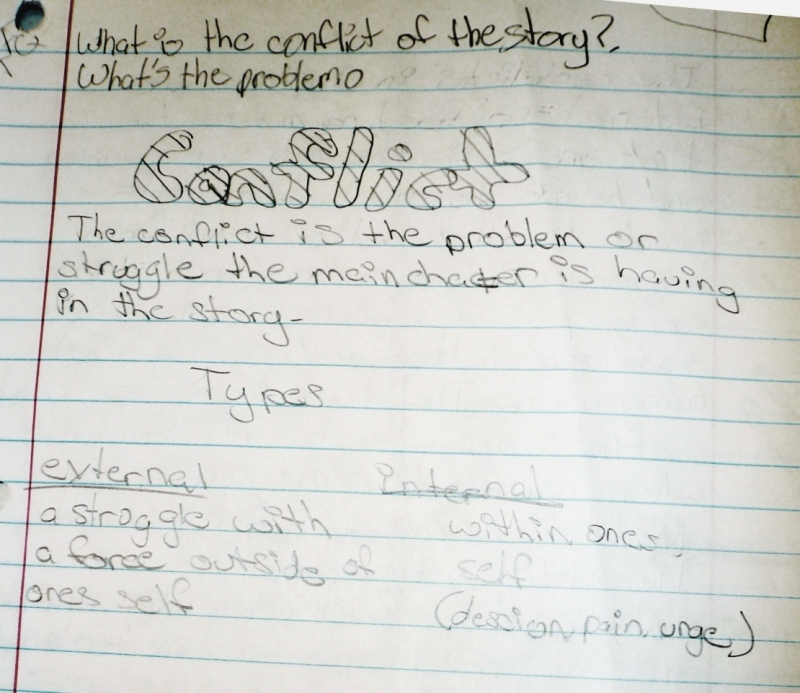 What is the conflict of the story?
What's the problem
Conflict
The conflict is the problem or
struggle the main chacter is having
in the story-
Types
external
a stroggle with
a force outside of
ones self
Internal
within ones
self
(dession, pain, urge)